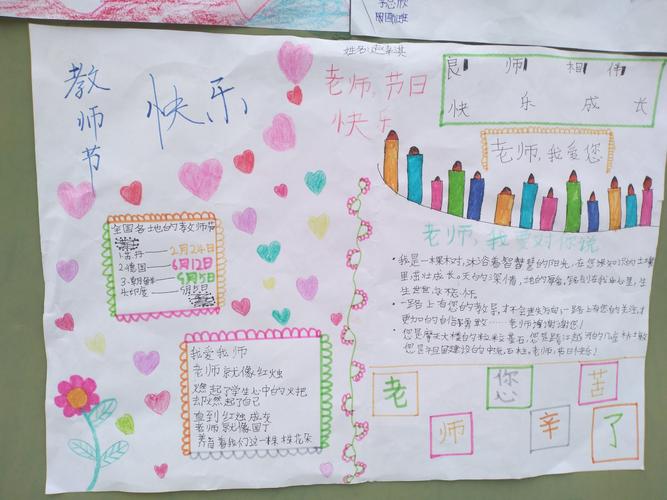 姓名:
教师节
快乐
老师,节日
快乐
良师相伴
快乐成长
老师,我爱您
全国各地的教师节
1.不丹——2月24日
2.德国——6月12日
3.朝鲜——9月5日
4.印度——9月5日
老师,我要对你说
•我是一棵树,沐浴着智慧的阳光,在您深知识的土壤
里茁壮成长。天的深情,地的厚爱,铭刻在我心里,生
生世世
•一路上有您的教导,才不会迷失方向;一路上有您的关注,才
更加的自信勇敢……老师谢谢您!
•您是摩天大楼的粒粒基石,您是跨江越河的
您是
老师,节日快乐!
我爱我师
老师就像红烛
燃起了学生心中的火把
却燃起了自己
直到红烛成灰
老师就像园丁
养育着我们这一棵棵花朵
老师您心辛苦了